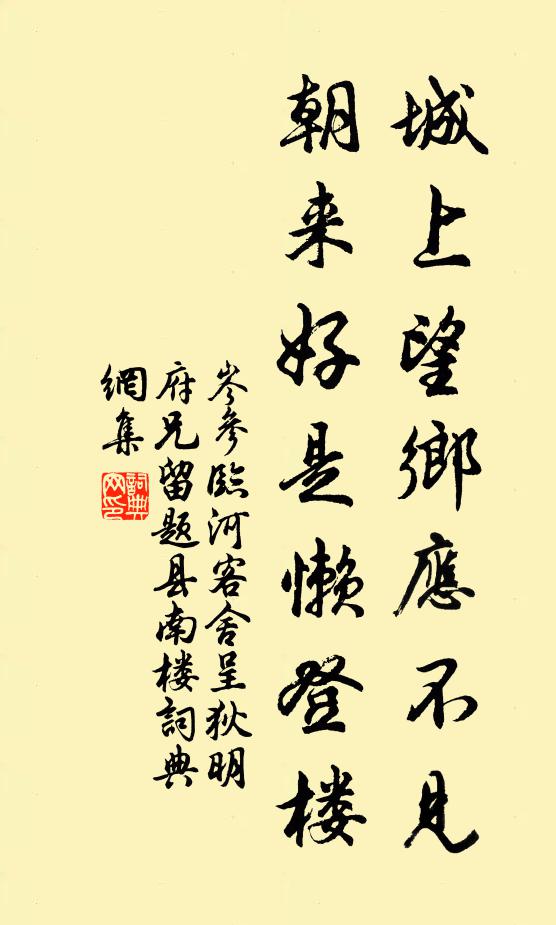 城上望鄉應不見
朝来好是懶登楼
岑參臨河客舍呈狄明
府兄留題县南楼詞典
網集
詞典
网印